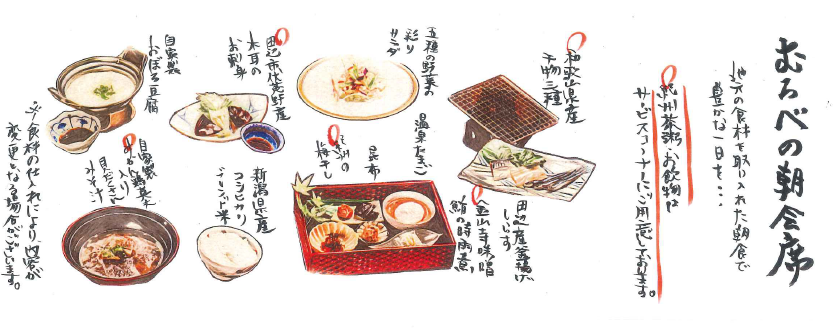 むろべの朝会席
地元の食材を取り入れた朝食で
豊かな一日を・・・
紀州茶粥・お飲物は
サービスコーナーにご用意しております。
和歌山県産
干物三種
五種の野菜の
彩り
サラダ
田辺市伏菟野産
木耳の
お刺身
自家製
おぼろ豆腐
田辺産釜揚げ
しらす
金山寺味噌
鮪の時雨煮
温泉たまご
昆布
紀州の
梅干し
新潟県産
コシヒカリ
ブレンド米
自家製
入り
具だくさん
みそ汁
※食材の仕入れにより内容が
変更となる場合がございます。